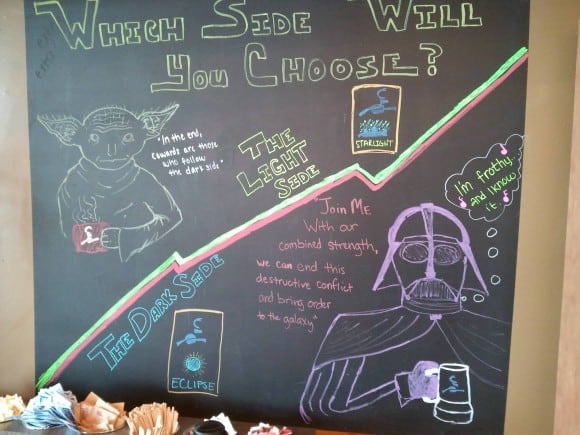 Which Side Will
You Choose?
"In the end,
cowards are those
who follow
the dark side"
The
Light
Side
STARLIGHT
I'm frothy...
and I know
it
"Join Me
With our
combined strength,
we can end this
destructive conflict
and bring order
to the galaxy"
The Dark Side
ECLIPSE